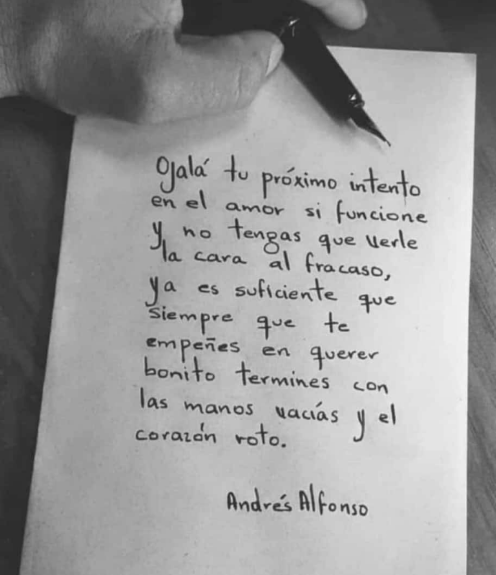 Ojalá tu próximo intento
en el amor si funcione
y no tengas que verle
la cara al fracaso,
ya es suficiente que
siempre que te
empeñes en querer
bonito termines con
las manos vacías y el
corazón roto.
Andrés Alfonso